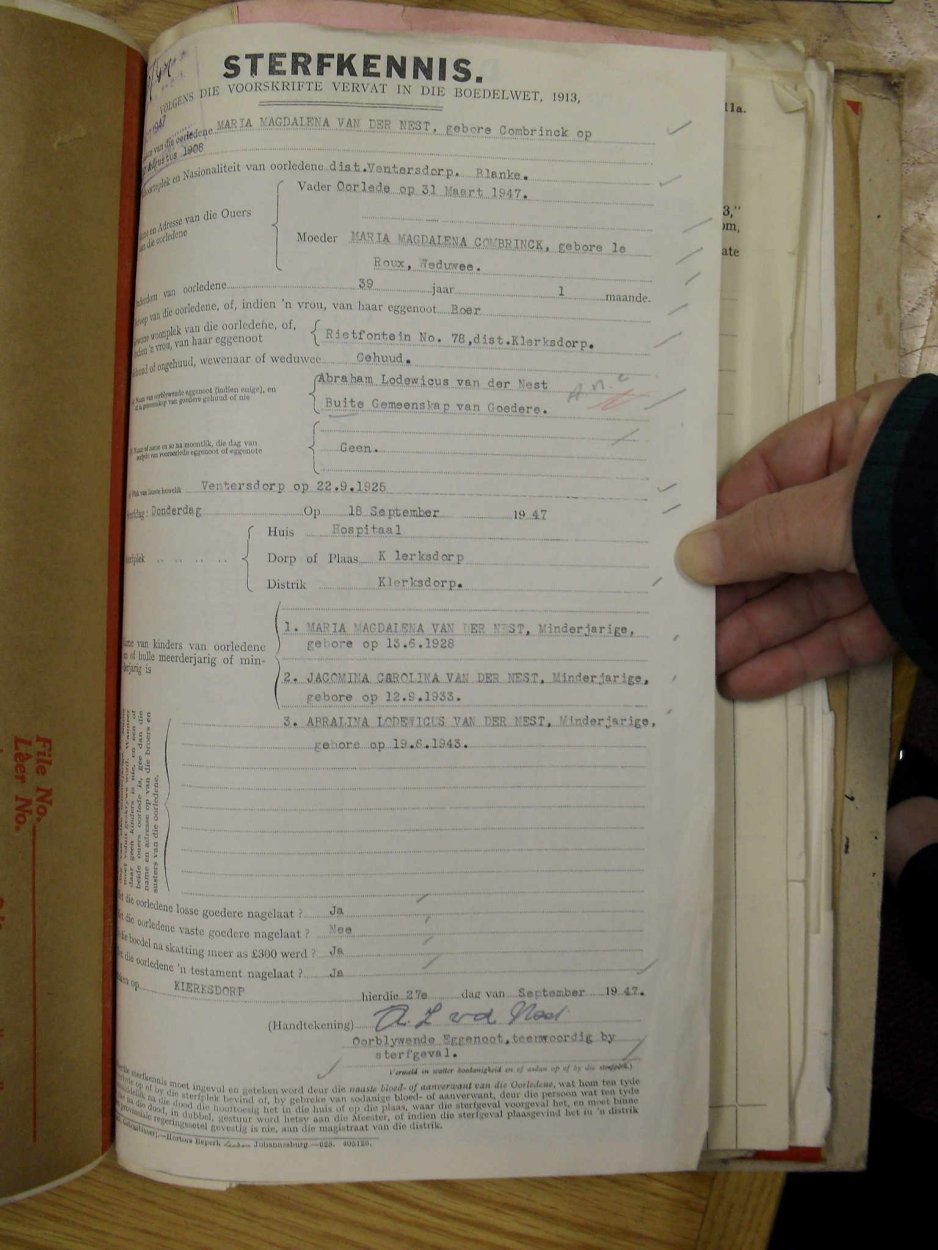 STERFKENNIS.
VOLGENS DIE VOORSKRIFTE VERVAT IN DIE BOEDELWET, 1913,
van die oorledene MARIA MAGDALENA VAN DER NEST, gebore Combrinck op
1908
en Nasionaliteit van oorledene dist.Ventersdorp. Blanke.
Vader Oorlede op 31 Maart 1947.
en Adresse van die Ouers
die oorledene
Moeder MARIA MAGDALENA COMBRINCK, gebore le
Roux, Weduwee.
van oorledene 39 jaar 1 maande.
van die oorledene, of, indien 'n vrou, van haar eggenoot Boer
woonplek van die oorledene, of,
'n vrou, van haar eggenoot
Rietfontein No. 78,dist.Klerksdorp.
of ongehuud, wewenaar of weduwee Gehuud.
Abraham Lodewicus van der Nest
Naam van oorblywende eggenoot (indien enige), en
of in gemeenskap van goedere gehuud of nie
Buite Gemeenskap van Goedere.
Geen.
Plek van laaste huwelik Ventersdorp op 22.9.1925
Donderdag Op 18 September 1947
Huis Hospitaal
Dorp of Plaas K lerksdorp
Distrik Klerksdorp.
van kinders van oorledene
of hulle meerderjarig of min-
derjarig is
1. MARIA MAGDALENA VAN DER NEST, Minderjarige,
gebore op 13.6.1928
2. JACOMINA CAROLINA VAN DER NEST, Minderjarige,
gebore op 12.9.1933.
3. ABRALINA LODEWICUS VAN DER NEST, Minderjarige,
gebore op 19.6.1943.
daar geen kinders is nie, en een of
beide ouers oorlede is, gee dan die
name en adresse op van die broers en
susters van die oorledene.
die oorledene losse goedere nagelaat ? Ja
die oorledene vaste goedere nagelaat ? Nee
die boedel na skatting meer as £300 werd ? Ja
die oorledene 'n testament nagelaat ? Ja
op KLERKSDORP hierdie 27e dag van September 1947.
(Handtekening) A L vd Nest
Oorblywende Eggenoot,teenwoordig by
sterfgeval.
Vermeld in watter hoedanigheid en of aldan op of by die sterfplek.)
sterfkennis moet ingevul en geteken word deur die naaste bloed- of aanverwant van die Oorledene, wat hom ten tyde
op of by die sterfplek bevind of, by gebreke van sodanige bloed- of aanverwant, deur die persoon wat ten tyde
na die dood die hooftoesig het in die huis of op die plaas, waar die sterfgeval voorgeval het, en moet binne
na die dood, in dubbel, gestuur word hetsy aan die Meester, of indien die sterfgeval plaasgevind het in 'n distrik
regeringssetel gevestig is nie, aan die magistraat van die distrik.
Hortors Beperk Johannesburg
File No.
Lêer No.
11a.
3,"
om,
ate